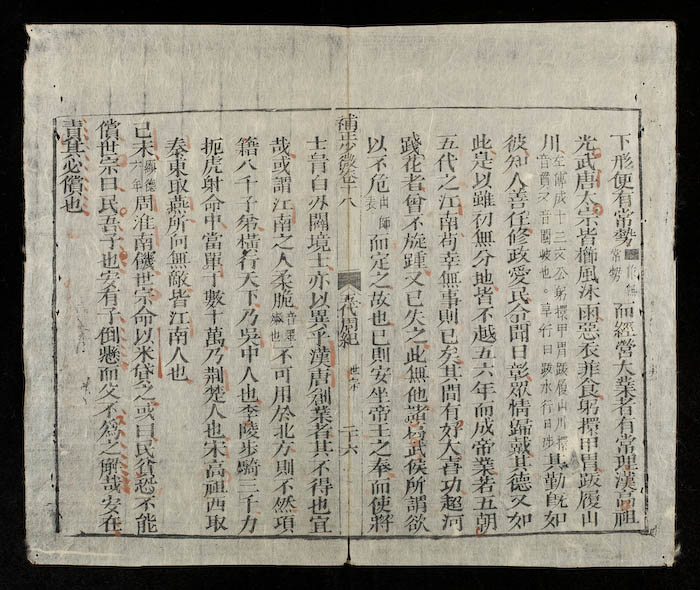 下形便有常勢常勢而經營大業者有常理漢高祖
光武唐太宗皆櫛風沐雨惡衣菲食躬擐甲冑跋履山
川左傳成十三文公躬擐甲胄跋履山川擐音貫又音關跋也草行曰跋水行曰涉其勤旣如
彼知人善任修政愛民令聞日彰眾情歸戴其德又如
此是以雖初無分地皆不越五六年而成帝業若五朝
五代之江南苟幸無事則已矣其間有好大喜功超河
踐花者曾不旋踵又已失之此無他諸葛武侯所謂欲
以不危出師表而定之故也已則安坐帝王之奉而使將
補正少微卷十八 五代周紀 世宗 二十六
士冒白刃闢境土亦以異乎漢唐創業者其不得也宜
哉或謂江南之人柔脆音翠也不可用於北方則不然項
籍八千子弟橫行天下乃吳中人也李陵步騎三千力
扼虎射命中當單于數十萬乃荆楚人也宋高祖西取
秦東取燕所向無敵皆江南人也
己未顯德六年周淮南饑世宗命以米貸之或曰民貧恐不能
償世宗曰民吾子也安有子倒懸而父不為之解哉安在
責其必償也